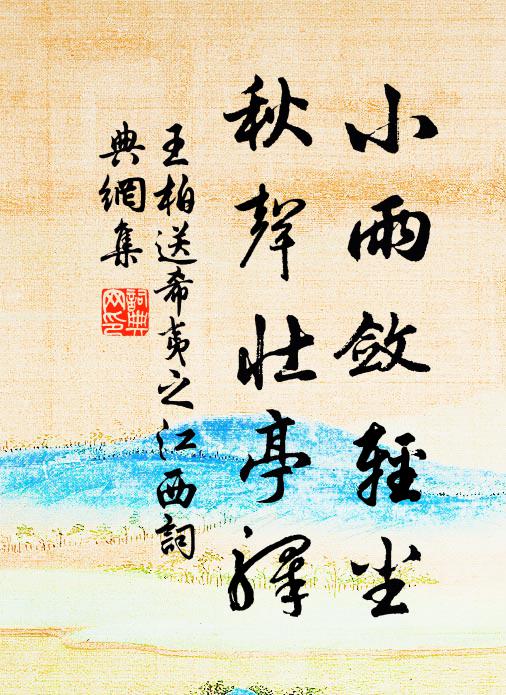 小雨斂輕尘
秋聲壮亭驛
王柏送希夷之江西詞
典網集
詞典
网印